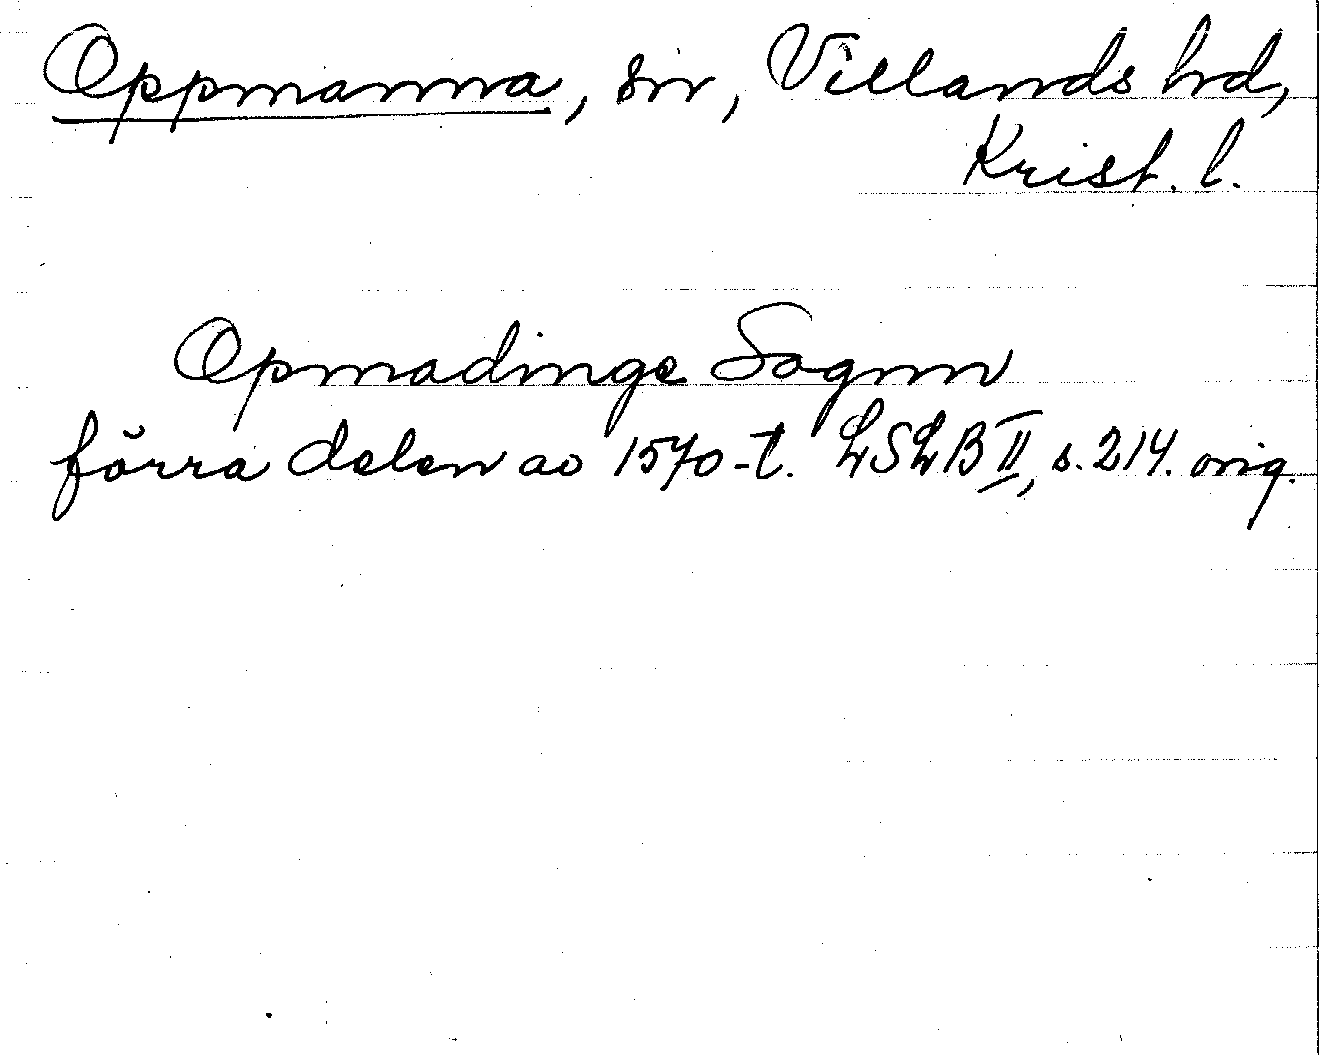 Oppmanna, sn, Villands hd,
Krist. l.
Opmadinge Sognn
förra delen av 1570-t. LSLB II, s. 214. orig.